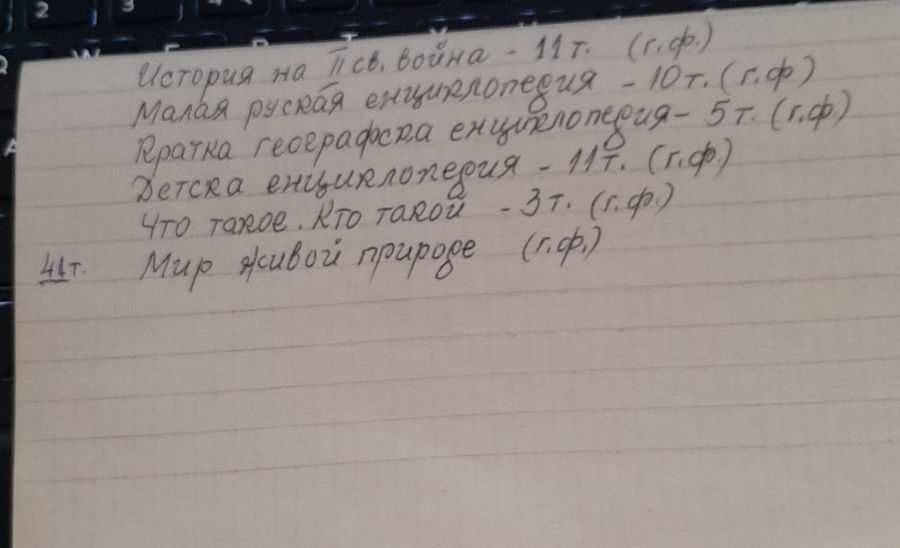 2 3
История на II св. война - 11 т. (г.ф.)
Малая руская енциклопедия - 10 т. (г.ф)
Кратка географска енциклопедия - 5 т. (г.ф.)
Детска енциклопедия - 11 т. (г.ф.)
Что такое. Кто такой - 3 т. (г.ф.)
41 т. Мир живой природе (г.ф.)